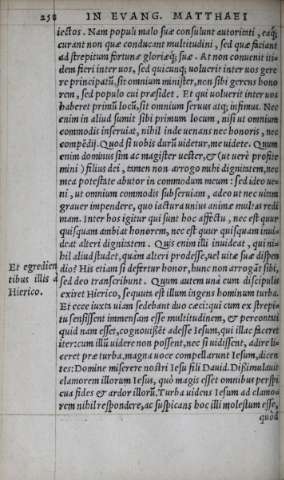 258 IN EVANG. MATTHAEI
iectos. Nam populi malo suæ consulunt autoritati, eaq́;
curant non quæ conducant multitudini, sed quæ faciant
ad strepitum fortunæ gloriæq́; suæ. At non conuenit iti-
dem fieri inter uos, sed quicunq; uoluerit inter uos gere
re principatũ, sit omnium minister, non sibi gerens hono
rem, sed populo cui præsidet. Et qui uoluerit inter uos
habere primũ locũ, sit omnium seruus atq; infimus. Nec
enim in aliud sumit sibi primum locum, nisi ut omnium
commodis inseruiat, nihil inde uenans nec honoris, nec
compẽdij. Quod si uobis durũ uidetur, me uidete. Quum
enim dominus sim ac magister uester, & (ut uerè profite
mini) filius dei, tamen non arrogo mihi dignitatem, nec
mea potestate abutor in commodum meum: sed ideo ue-
ni, ut omnium commodis subseruiam, adeo ut nec uitam
grauer impendere, quo iactura unius animæ multas redi
mam. Inter hos igitur qui sunt hoc affectu, nec est quur
quisquam ambiat honorem, nec est quur quisquam inui-
deat alteri dignitatem. Quis enim illi inuideat, qui ni-
hil aliud studet, quàm alteri prodesse, uel uitæ suæ dispen
dio? His etiam si defertur honor, hunc non arrogãt sibi,
sed deo transcribunt. Quum autem unà cum discipulis
exiret Hierico, sequuta est illum ingens hominum turba.
Et egredien
tibus illis à
Hierico.
Et ecce iuxta uiam sedebant duo cæci: qui cum ex strepi-
tu sensissent immensam esse multitudinem, & percontati
quid nam esset, cognouissẽt adesse Iesum, qui illac faceret
iter: cum illũ uidere non possent, nec si uidissent, adire li-
ceret præ turba, magna uoce compellarunt Iesum, dicen
tes: Domine miserere nostri Iesu fili Dauid. Dissimulauit
clamorem illorum Iesus, quò magis esset omnibus perspi
cua fides & ardor illorũ. Turba uidens Iesum ad clamo-
rem nihil respondere, ac suspicans hoc illi molestum esse,
quod